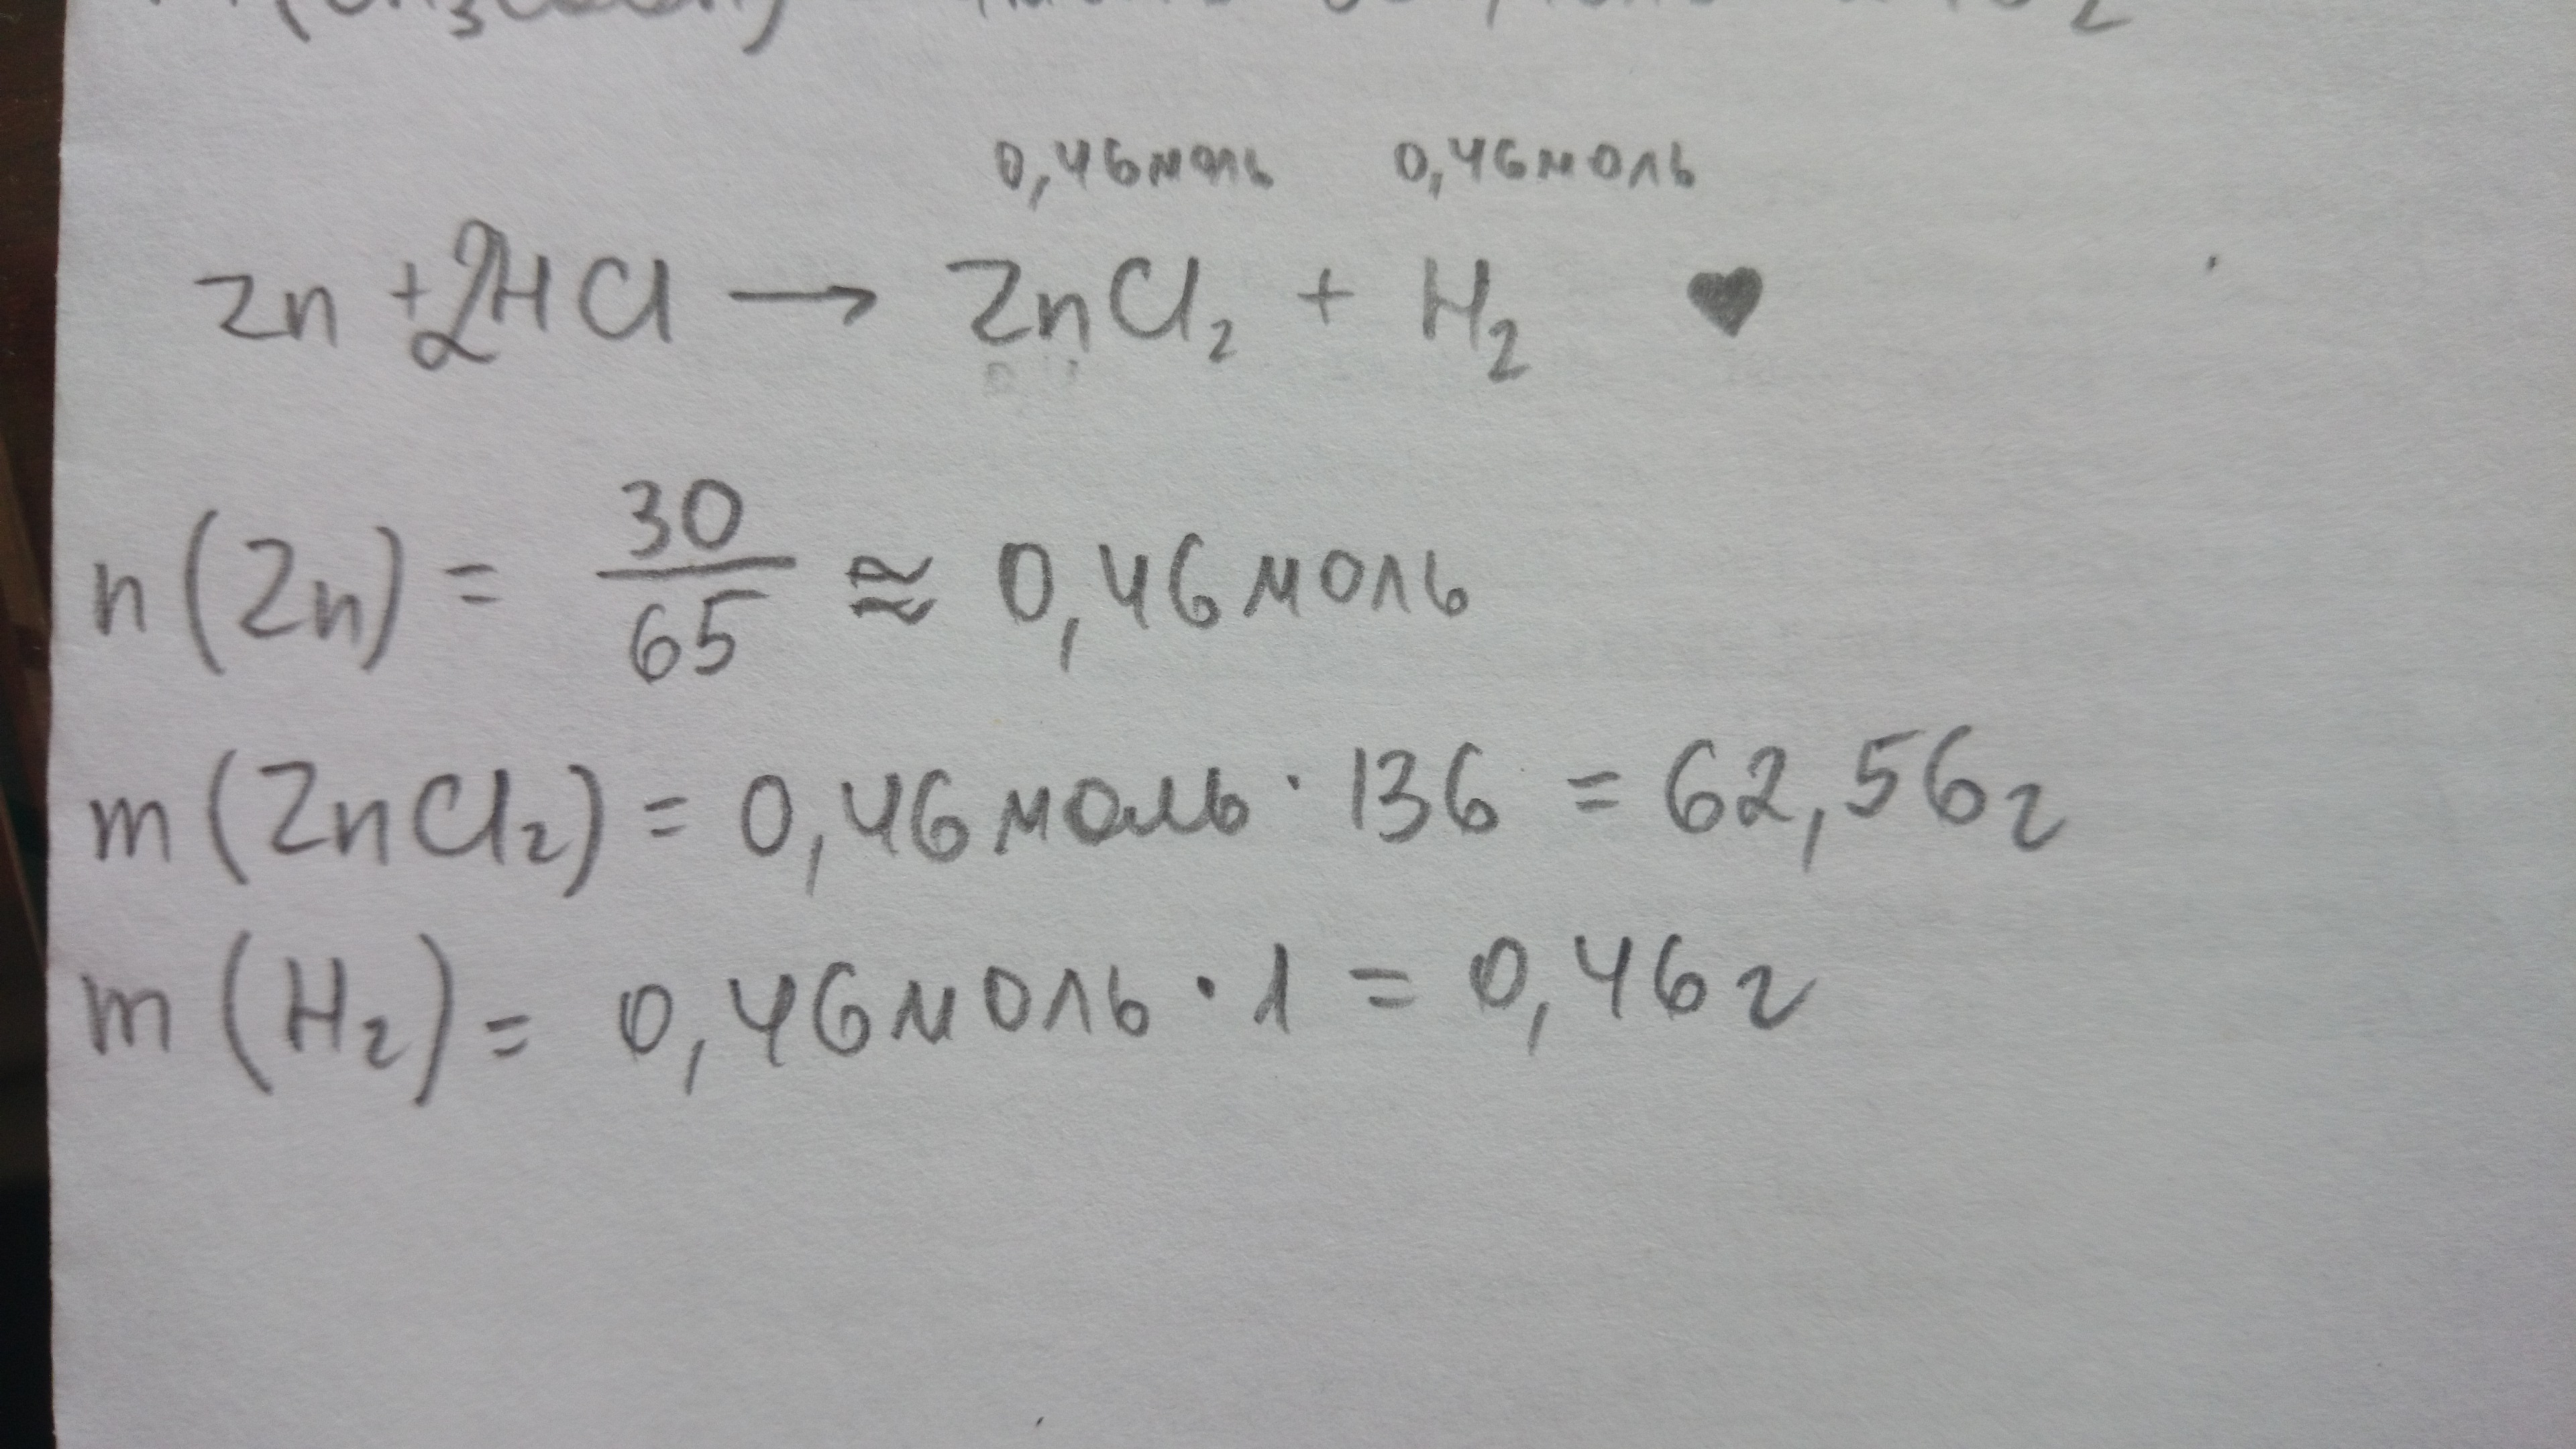 0,46моль 0,46моль
Zn + 2HCl → ZnCl₂ + H₂ ♥
n(Zn) = 30/65 ≈ 0,46 моль
m(ZnCl₂) = 0,46 моль · 136 = 62,56 г
m(H₂) = 0,46 моль · 1 = 0,46 г